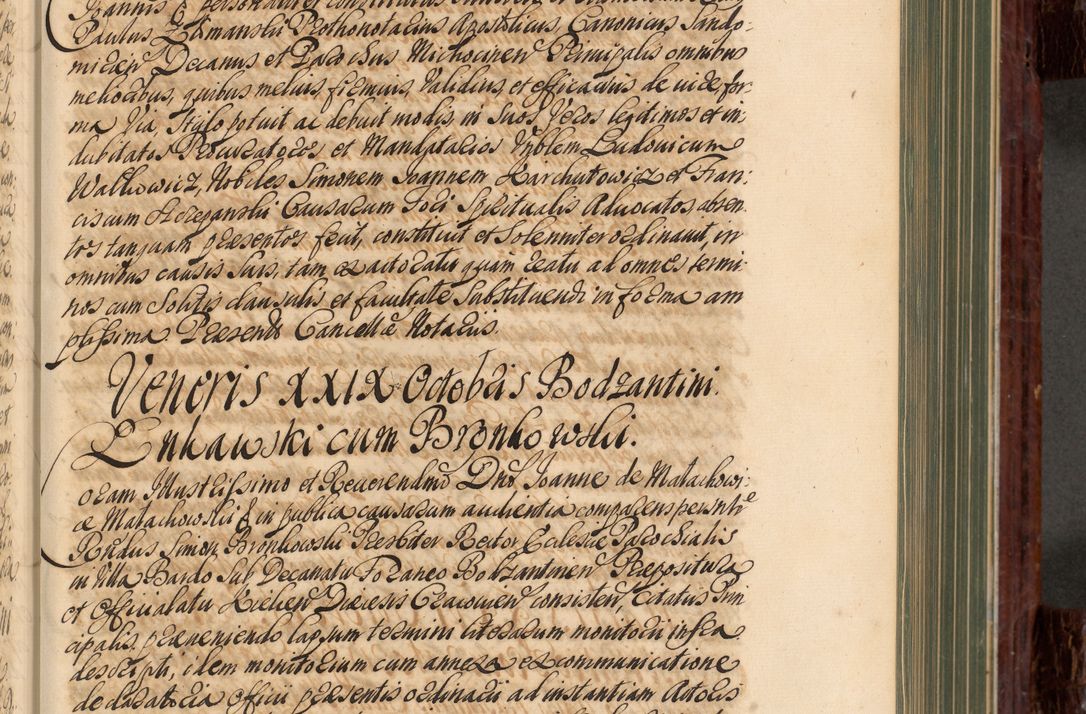 Joannis & personaliter constitutus
Paulus Zymanski Prothonotarius Apostolicus, Canonicus Sando-
mirien Decanus et Parochus Michocinen Principalis omnibus
melioribus, quibus melius, firmius, validius, et efficacius de iure, for-
ma Via, Stylo potuit ac debuit modis, in Suos Veros legitimos et in-
dubitatos Procuratores et Mandatarios Nblem Ludovicum
Walkowicz, Nobiles Simonem Joannem Karchutowicz et Fran-
ciscum Causarum Fori Spiritualis Advocatos, absen-
tes tanquam praesentes fecit, constituit et Solenniter ordinavit, in
omnibus causis Suis, tam ex actoratu quam reatu ad omnes termi-
nos cum Solitis clausulis et facultate Substituendi in forma am-
plissima. Praesente Cancell e Notarii.
Veneris XXIX Octobris Bodzantini.
Lukawski cum Bronkowski.
Coram Illustrissimo et Reverendmo Dno Joanne de Malachowi-
ce Malachowski & in publica causarum audientia comparens personlr
Rndus Simon Bronkowski Presbiter Rector Ecclesiae Parochialis
in Villa Bardo Sub Decanatu Foraneo Bodzantinen Praepositura
et Officialatu Kielcen Diaecesis Cracovien consisten, Citatus Prin-
cipalis, praeveniendo lapsum termini literarum monitorii infra
descripti, idem monitorium cum annexa excommunicatione
declaratoria Officii praesentis ordinarii ad instantiam Actoris